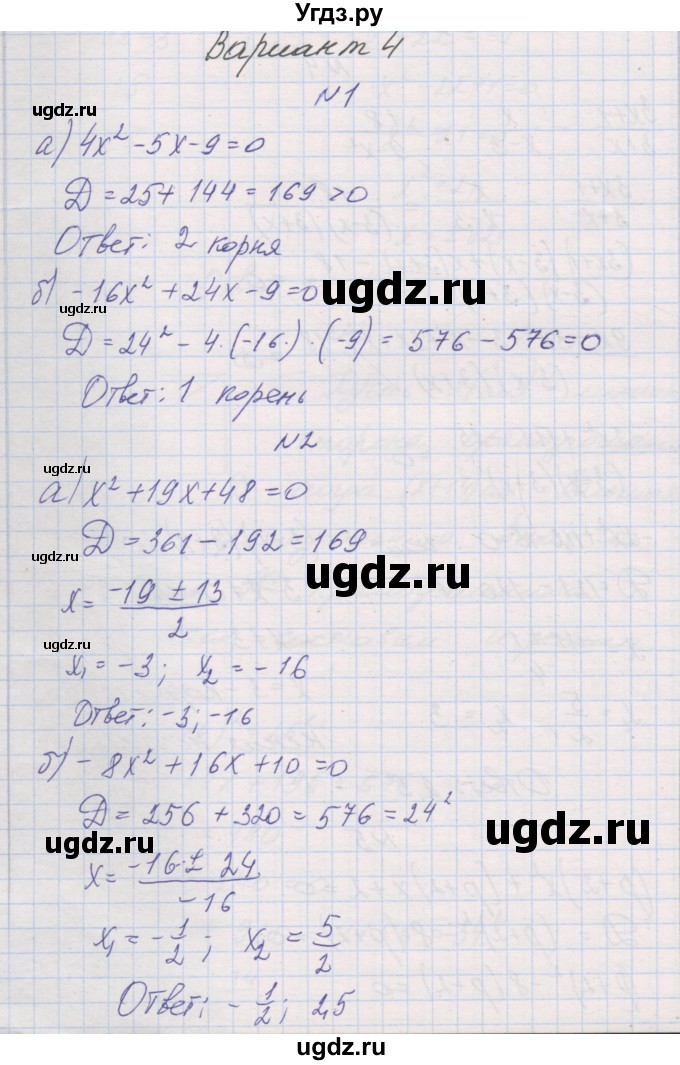 Угдз.ру
Вариант 4
N1
ugdz.ru
а) 4x² - 5x - 9 = 0
ugdz.ru
D = 25 + 144 = 169 > 0
Ответ: 2 корня
ugdz.ru
б) - 16x² + 24x - 9 = 0
ugdz.ru
D = 24² - 4·(-16)·(-9) = 576 - 576 = 0
Ответ: 1 корень
N2
ugdz.ru
а) x² + 19x + 48 = 0
D = 361 - 192 = 169
ugdz.ru
ugdz.ru
x = (-19 ± 13)/2
ugdz.ru
x₁ = -3; x₂ = -16
Ответ: -3; -16
б) - 8x² + 16x + 10 = 0
D = 256 + 320 = 576 = 24²
ugdz.ru
ugdz.ru
x = (-16 ± 24)/-16
x₁ = -1/2; x₂ = 5/2
Ответ: -1/2; 2,5
ugdz.ru
ugdz.ru